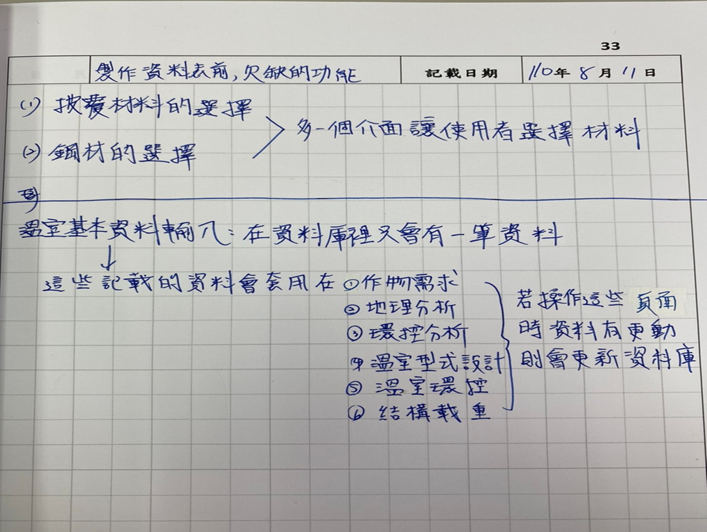 33
製作資料表前,欠缺的功能 記載日期 110年8月11日
(1) 披覆材料的選擇
(2) 鋼材的選擇
多一個介面讓使用者選擇材料
溫室基本資料輸入:在資料庫裡只會有一筆資料
這些記載的資料會套用在 ①作物需求
②地理分析
③環控分析
④溫室型式設計
⑤溫室環控
⑥結構載重
若操作這些頁面
時資料有更動
則會更新資料庫